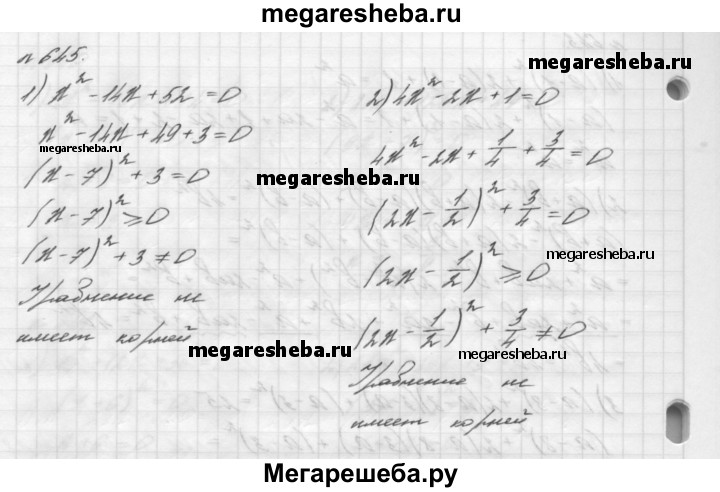 megaresheba.ru
n 645.
1) x² - 14x + 52 = 0
x² - 14x + 49 + 3 = 0
(x - 7)² + 3 = 0
(x - 7)² ⩾ 0
(x - 7)² + 3 ≠ 0
Уравнение не
имеет корней
2) 4x² - 2x + 1 = 0
4x² - 2x + 1/4 + 3/4 = 0
(2x - 1/2)² + 3/4 = 0
(2x - 1/2)² ⩾ 0
(2x - 1/2)² + 3/4 ≠ 0
Уравнение не
имеет корней
megaresheba.ru
megaresheba.ru
megaresheba.ru
megaresheba.ru
megaresheba.ru
megaresheba.ru
Мегарешеба.ру